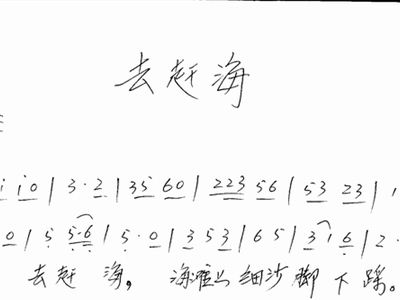 去赶海
i i 0 | 3 · 2 | 35 60 | 223 56 | 53 23 | 1
0 | 5 5·6 | 5 · 0 | 3 5 3 | 6 5 | 3 1 6 | 2 ·
去赶 海, 海滩上细沙脚下踩。